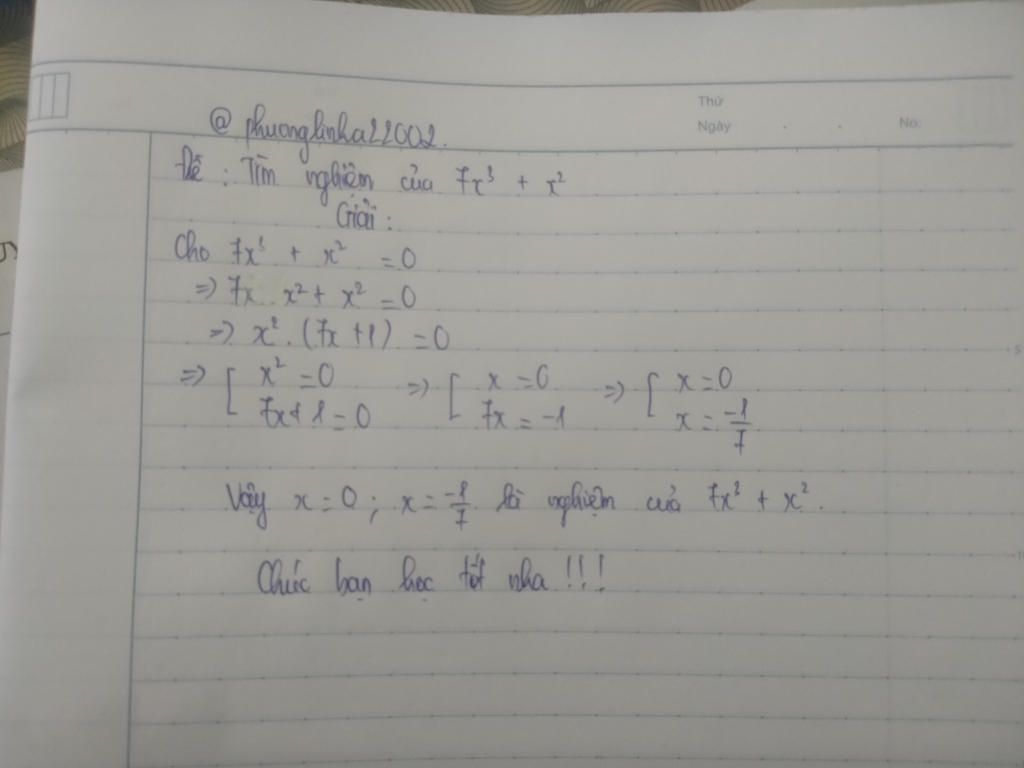 Thứ
Ngày . . No.
@ phuonglinha22002.
Đề : Tìm nghiệm của 7x³ + x²
Giải :
Cho 7x³ + x² = 0
=> 7x . x² + x² = 0
=> x² . (7x + 1) = 0
=> [ x² = 0 => [ x = 0 => [ x = 0
7x + 1 = 0 7x = -1 x = -1/7
Vậy x = 0 ; x = -1/7 là nghiệm của 7x³ + x².
Chúc bạn học tốt nha !!!
5
10